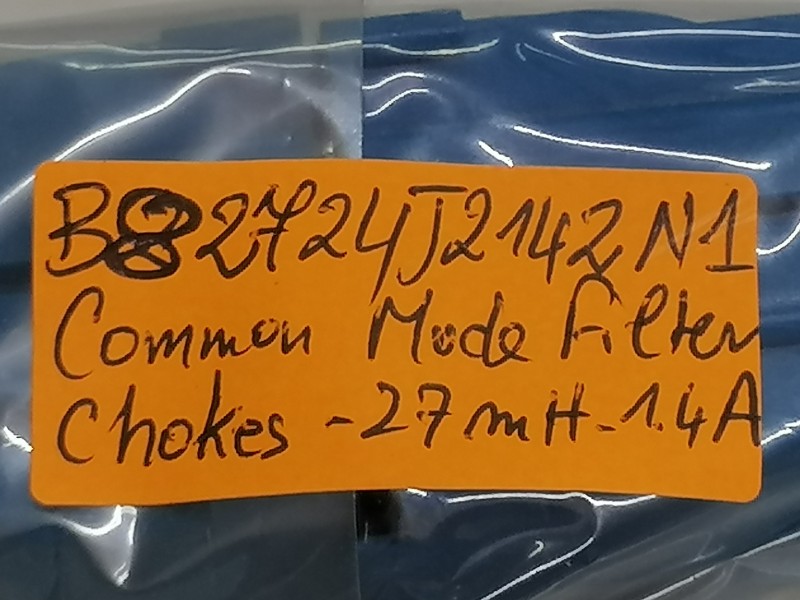 B82724J2142N1
Common Mode Filter
Chokes - 27mH - 1.4A